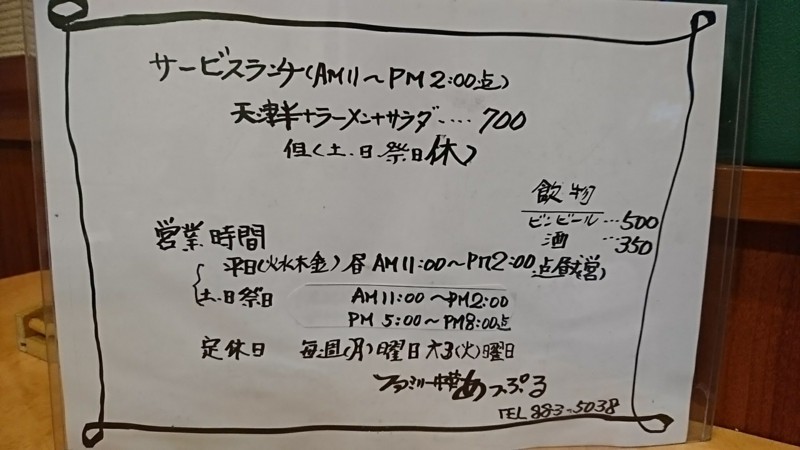 サービスランチ(AM11〜PM2:00点)
天津半+ラーメン+サラダ‥‥700
但し(土.日.祭日休)
飲物
ビンビール…500
酒…350
営業時間
平日(火水木金)昼AM11:00〜PM2:00点
土.日祭日
AM11:00〜PM2:00
PM5:00〜PM8:00点
定休日 毎週(月)曜日 第3(火)曜日
ファミリー中華あっぷる
TEL 883-5038